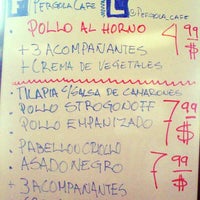 F PERGOLA CAFE L @PERGOLA_CAFE
- POLLO AL HORNO 4,99
+ 3 ACOMPAÑANTES $
+ CREMA DE VEGETALES
- TILAPIA C/SALSA DE CAMARONES
- POLLO STROGONOFF 7,99
- POLLO EMPANIZADO $
- PABELLON CRIOLLO
- ASADO NEGRO 7,99
+ 3 ACOMPAÑANTES $
+ CREMA DE VEGETALES